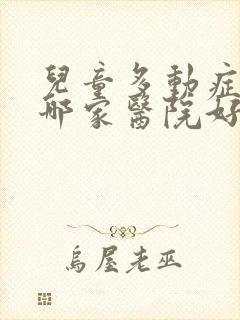 兒童多動症
哪家醫院好
烏屋老巫